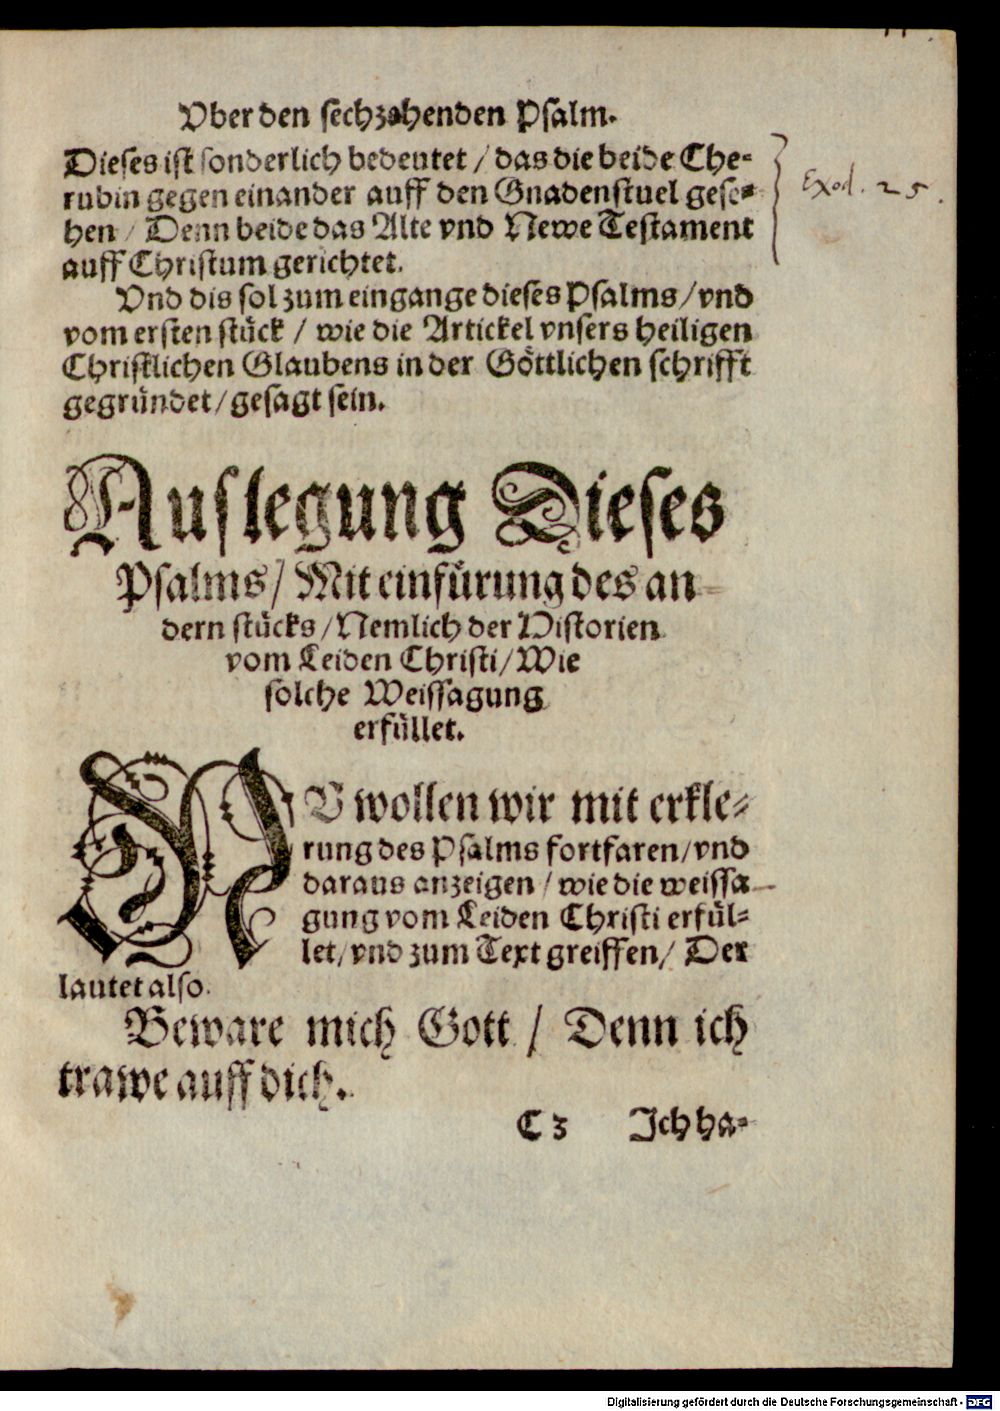 Vber den sechzehenden Psalm.
Dieses ist sonderlich bedeutet / das die beide Che-
rubin gegen einander auff den Gnadenstuel gese-
hen / Denn beide das Alte vnd Newe Testament
auff Christum gerichtet.
Exod. 25.
Vnd dis sol zum eingange dieses Psalms / vnd
vom ersten stück / wie die Artickel vnsers heiligen
Christlichen Glaubens in der Göttlichen schrifft
gegründet / gesagt sein.
Auslegung Dieses
Psalms / Mit einfürung des an-
dern stücks / Nemlich der Historien
vom Leiden Christi / Wie
solche Weissagung
erfüllet.
NV wollen wir mit erkle-
rung des Psalms fortfaren / vnd
daraus anzeigen / wie die weissa-
gung vom Leiden Christi erfül-
let / vnd zum Text greiffen / Der
lautet also.
Beware mich Gott / Denn ich
trawe auff dich.
C 3 Ich ha-
Digitalisierung gefördert durch die Deutsche Forschungsgemeinschaft - DFG